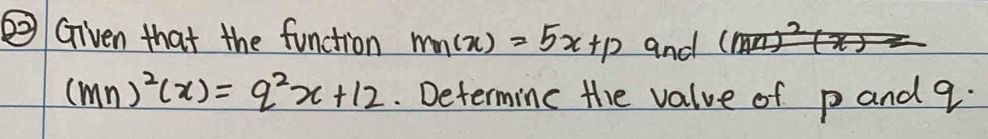 Q2 Given that the function mn(x) = 5x+p and
(mn)²(x) = q²x+12. Determine the value of p and q.